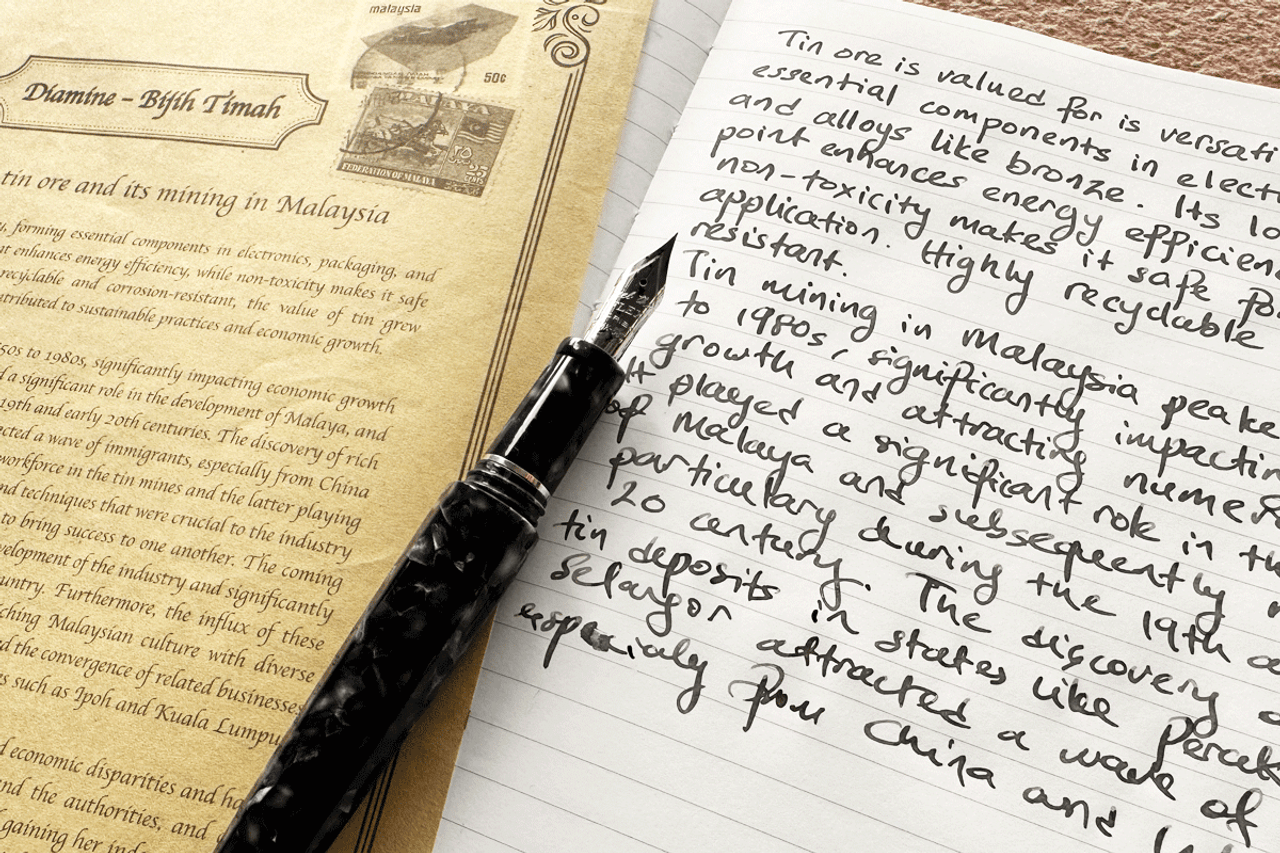 malaysia
50c
Diamine – Bijih Timah
MALAYA
25
FEDERATION OF MALAYA
tin ore and its mining in Malaysia
forming essential components in electronics, packaging, and
enhances energy efficiency, while non-toxicity makes it safe
recyclable and corrosion-resistant, the value of tin grew
to sustainable practices and economic growth.
50s to 1980s, significantly impacting economic growth
a significant role in the development of Malaya, and
19th and early 20th centuries. The discovery of rich
a wave of immigrants, especially from China
workforce in the tin mines and the latter playing
techniques that were crucial to the industry
to bring success to one another. The coming
of the industry and significantly
Furthermore, the influx of these
Malaysian culture with diverse
the convergence of related businesses
such as Ipoh and Kuala Lumpu
economic disparities and ha
the authorities, and
gaining her inde
Tin ore is valued for is versati
essential components in elect
and alloys like bronze. Its lo
point enhances energy efficien
non-toxicity makes it safe fo
application. Highly recyclable
resistant.
Tin mining in Malaysia peake
to 1980s, significantly impactin
growth and attracting numer
It played a significant role in th
of Malaya and subsequently
particulary during the 19th a
20 century. The discovery
tin deposits in states like Perak
Selangor attracted a wave of
especialy from China and